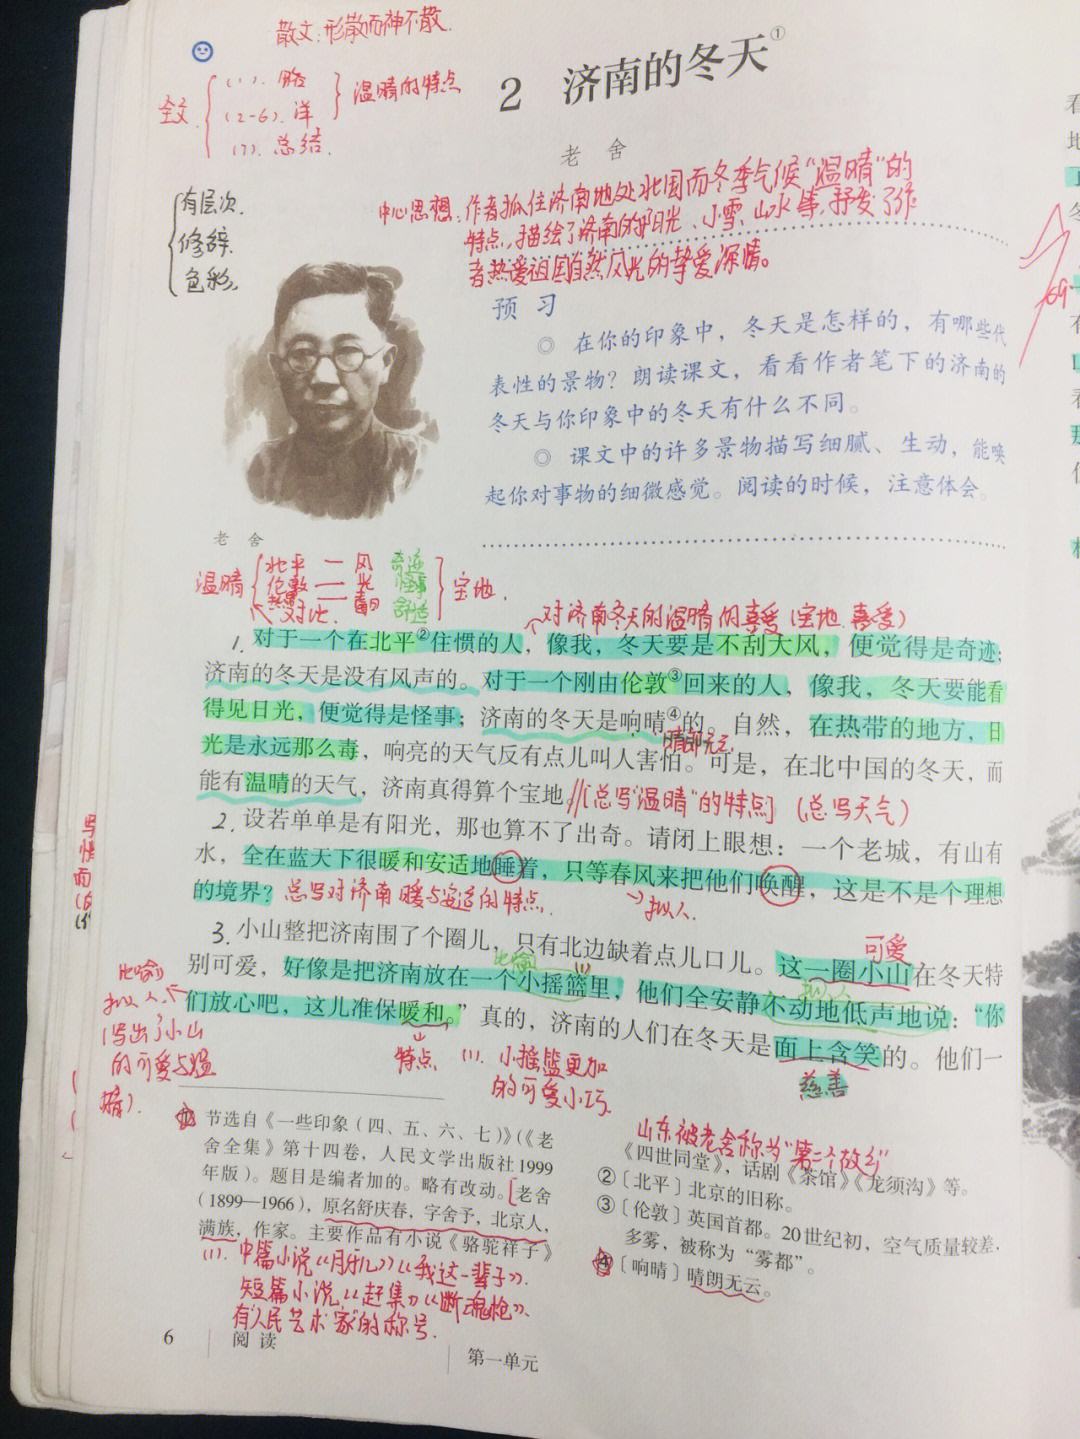 散文:形散而神不散.
全文
(1). 略
(2-6). 详
(7). 总结.
温晴的特点
2 济南的冬天①
老 舍
有层次.
修辞.
色彩.
中心思想:作者抓住济南地处北国而冬季气候“温晴”的
特点,描绘了济南的阳光、小雪、山水等,抒发了作
者热爱祖国自然风光的挚爱深情。
预 习
◎ 在你的印象中，冬天是怎样的，有哪些代
表性的景物？朗读课文，看看作者笔下的济南的
冬天与你印象中的冬天有什么不同。
◎ 课文中的许多景物描写细腻、生动，能唤
起你对事物的细微感觉。阅读的时候，注意体会。
老 舍
温晴
北平 — 风 奇迹
伦敦 — 光 怪事
热带 — 毒日 舒适
对比.
宝地.
对济南冬天的温晴的喜爱(宝地.喜爱)
1.对于一个在北平②住惯的人，像我，冬天要是不刮大风，便觉得是奇迹；
济南的冬天是没有风声的。对于一个刚由伦敦③回来的人，像我，冬天要能看
得见日光，便觉得是怪事；济南的冬天是响晴④的。自然，在热带的地方，日
晴朗无云.
光是永远那么毒，响亮的天气反有点儿叫人害怕。可是，在北中国的冬天，而
能有温晴的天气，济南真得算个宝地。//[总写“温晴”的特点] (总写天气)
2.设若单单是有阳光，那也算不了出奇。请闭上眼想：一个老城，有山有
水，全在蓝天下很暖和安适地睡着，只等春风来把他们唤醒，这是不是个理想
的境界？总写对济南暖与安适的特点.
拟人.
3.小山整把济南围了个圈儿，只有北边缺着点儿口儿。这一圈小山在冬天特
可爱
别可爱，好像是把济南放在一个小摇篮里，他们全安静不动地低声地说：“你
比喻
拟人
们放心吧，这儿准保暖和。”真的，济南的人们在冬天是面上含笑的。他们一
慈善
特点
(1). 小摇篮更加
的可爱小巧.
比喻
拟人.
(写出了小山
的可爱与温
晴).
① 节选自《一些印象（四、五、六、七）》（《老
舍全集》第十四卷，人民文学出版社1999
年版）。题目是编者加的。略有改动。[老舍
（1899—1966），原名舒庆春，字舍予，北京人，
满族，作家。主要作品有小说《骆驼祥子》
(1). 中篇小说《月牙儿》《我这一辈子》.
短篇小说.《赶集》《断魂枪》、
有“人民艺术家”的称号.
山东被老舍称为“第二个故乡”
《四世同堂》，话剧《茶馆》《龙须沟》等。
②〔北平〕北京的旧称。
③〔伦敦〕英国首都。20世纪初，空气质量较差，
多雾，被称为“雾都”。
④〔响晴〕晴朗无云。
6 阅读
第一单元